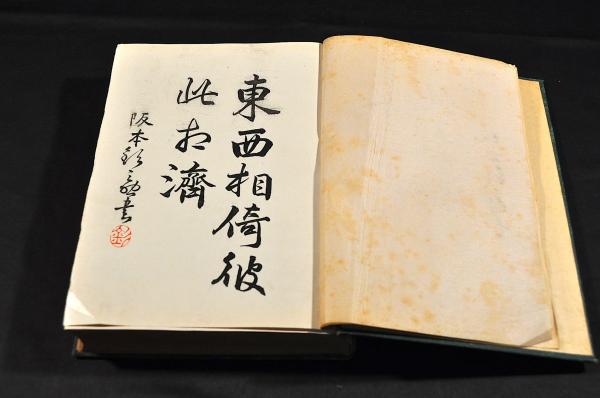 東西相倚彼
此相濟
阪本釤之助書